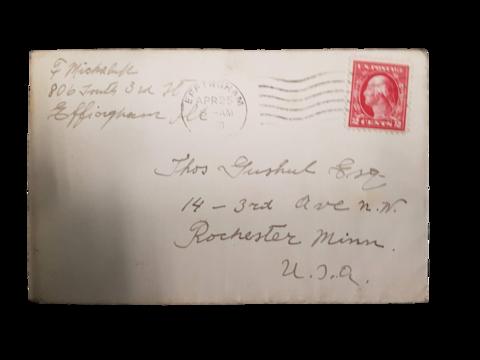 806 South 3rd St
Effingham Ill
EFFINGHAM
APR 25
AM
U.S. POSTAGE
2 CENTS 2
Thos Gushul Esq
14 - 3rd Ave N.W.
Rochester Minn.
U.S.A.